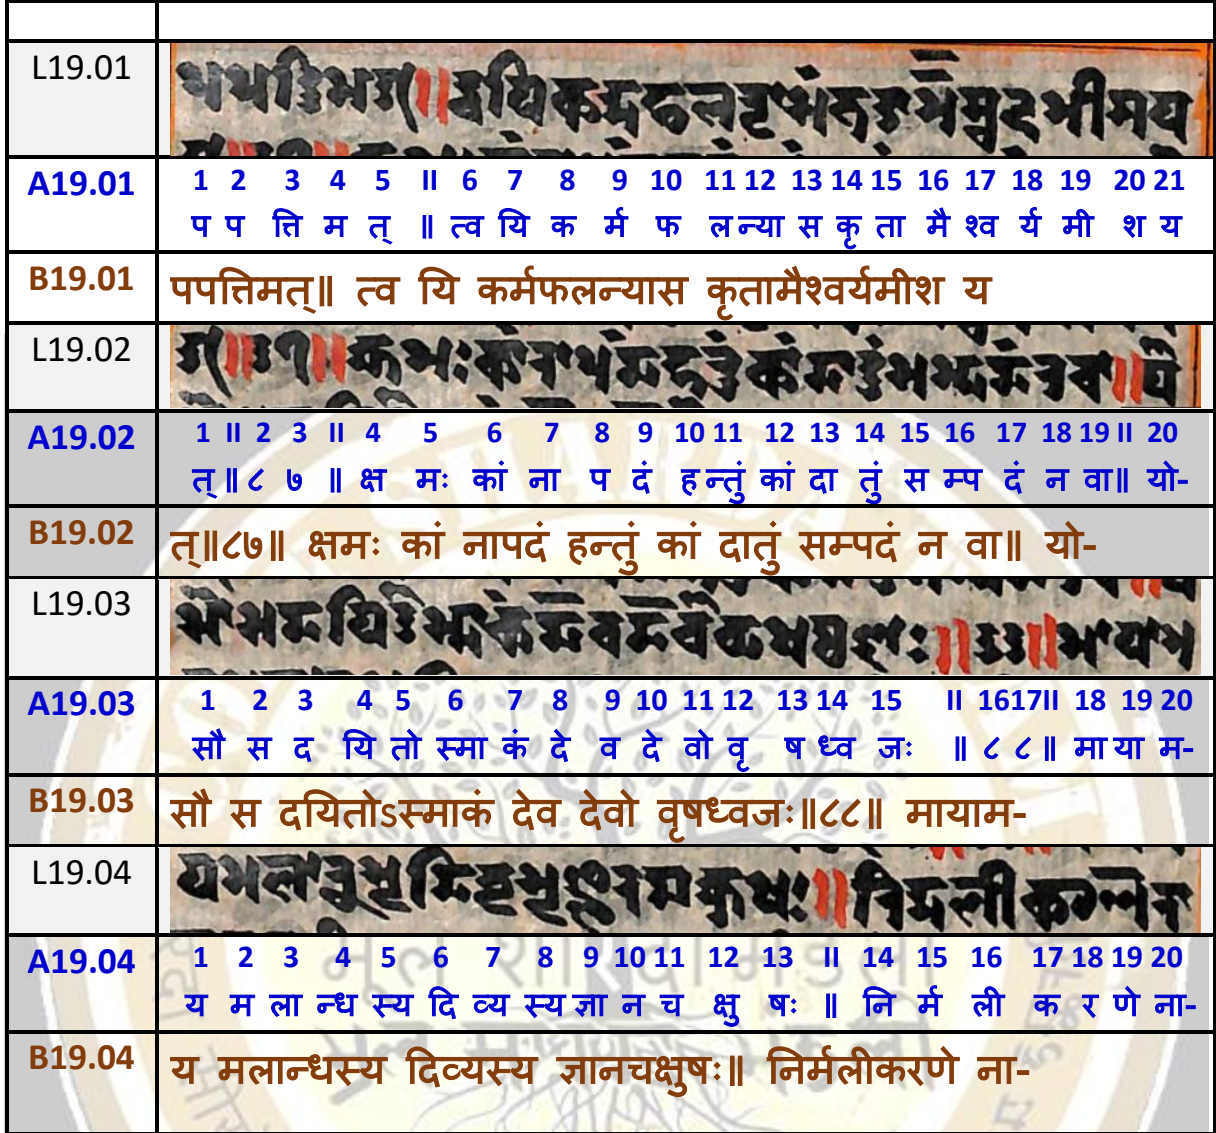 L19.01
A19.01 1 2 3 4 5 II 6 7 8 9 10 11 12 13 14 15 16 17 18 19 20 21
प प त्ति म त् ॥ त्व यि क र्म फ ल न्या स कृ ता मै श्व र्य मी श य
B19.01 पपत्तिमत्॥ त्व यि कर्मफलन्यास कृतामैश्वर्यमीश य
L19.02
A19.02 1 II 2 3 II 4 5 6 7 8 9 10 11 12 13 14 15 16 17 18 19 II 20
त् ॥ ८ ७ ॥ क्ष मः कां ना प दं ह न्तुं कां दा तुं स म्प दं न वा॥ यो-
B19.02 त्॥८७॥ क्षमः कां नापदं हन्तुं कां दातुं सम्पदं न वा॥ यो-
L19.03
A19.03 1 2 3 4 5 6 7 8 9 10 11 12 13 14 15 II 1617II 18 19 20
सौ स द यि तो स्मा कं दे व दे वो वृ ष ध्व जः ॥ ८ ८ ॥ मा या म-
B19.03 सौ स दयितोऽस्माकं देव देवो वृषध्वजः॥८८॥ मायाम-
L19.04
A19.04 1 2 3 4 5 6 7 8 9 10 11 12 13 II 14 15 16 17 18 19 20
य म ला न्ध स्य दि व्य स्य ज्ञा न च क्षु षः ॥ नि र्म ली क र णे ना-
B19.04 य मलान्धस्य दिव्यस्य ज्ञानचक्षुषः॥ निर्मलीकरणे ना-